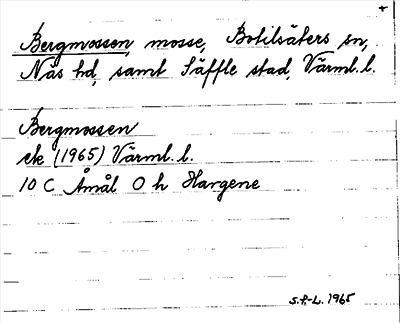 +
Bergmossen, mosse, Botilsäters sn,
Näs hd, samt Säffle stad, Värml. l.
Bergmossen
ek (1965) Värml. l.
10 C Åmål O h Hargene
S.F.-L. 1965